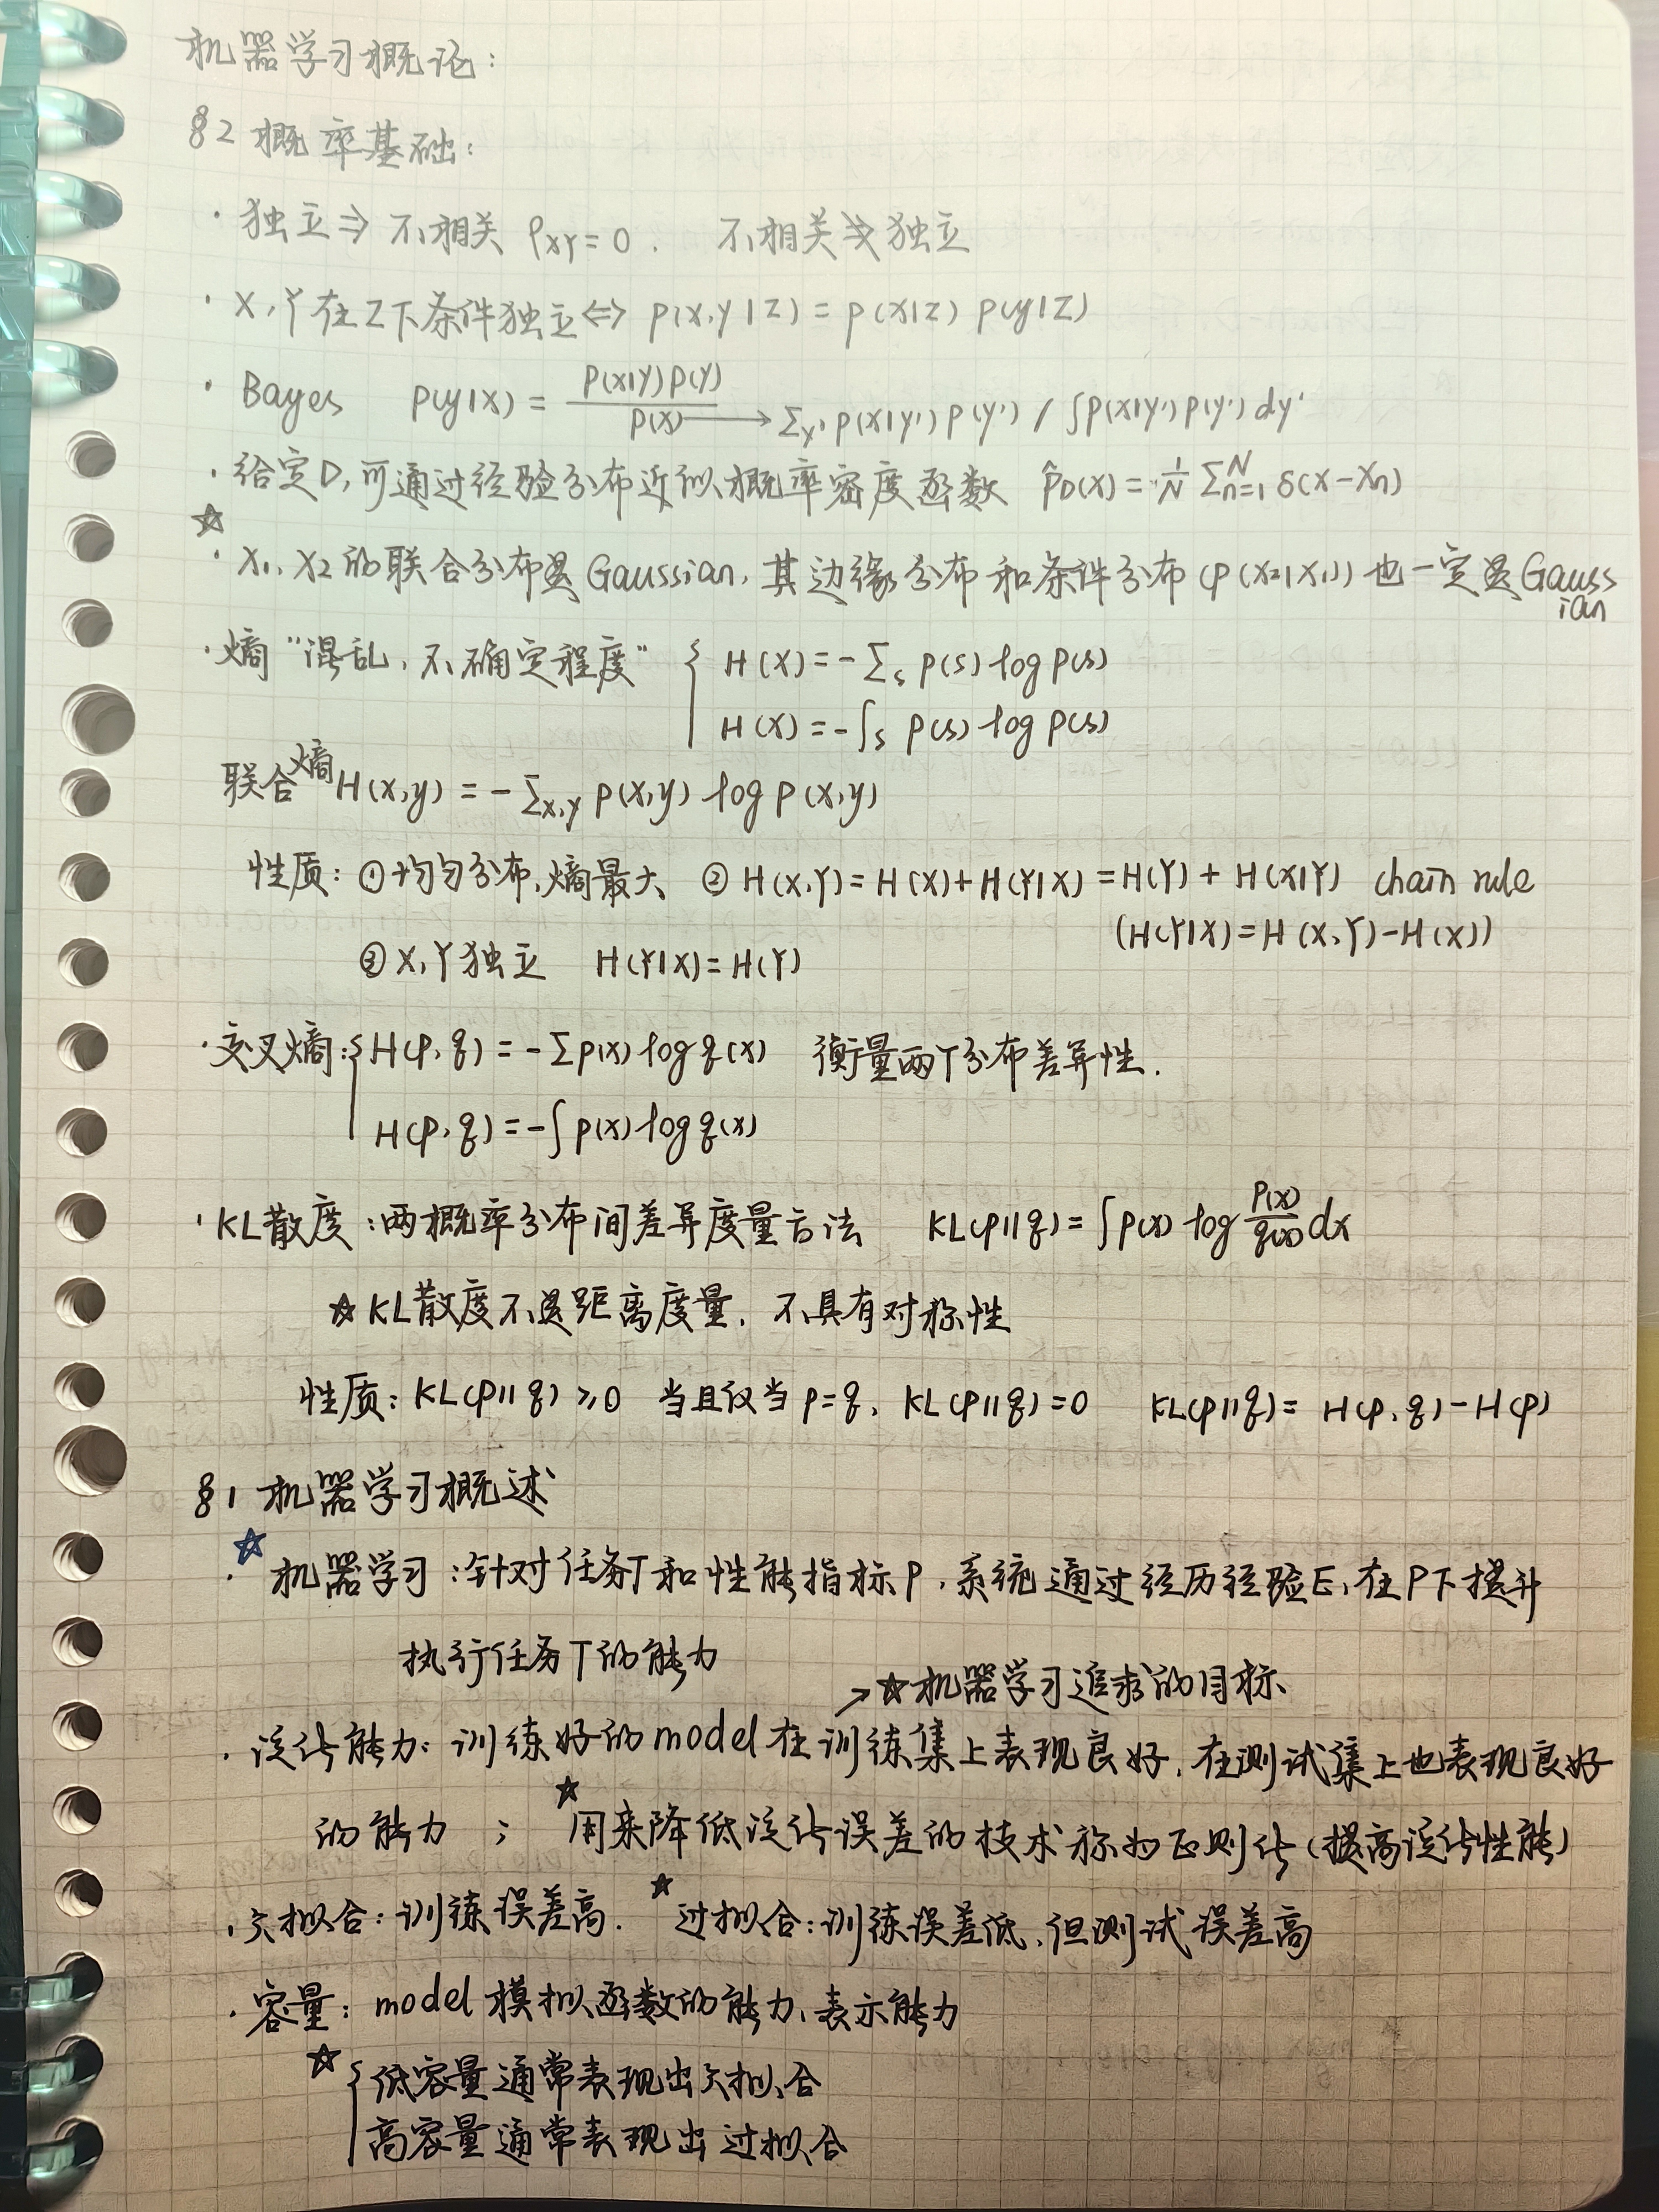 机器学习概论：
§2 概率基础：
· 独立⇒不相关 ρXY=0. 不相关⇏独立
· X,Y在Z下条件独立⇔ p(x,y|z) = p(x|z) p(y|z)
· Bayes p(y|x) = p(x|y)p(y) / p(x) → Σy' p(x|y') p(y') / ∫p(x|y')p(y')dy'
· 给定D,可通过经验分布近似概率密度函数 p̂D(x) = 1/N Σ_{n=1}^{N} δ(x-xn)
☆· X1、X2的联合分布是Gaussian,其边缘分布和条件分布(p(x2|x1))也一定是Gaussian
· 熵 "混乱、不确定程度" { H(X) = -Σs p(s) log p(s)
H(X) = -∫s p(s) log p(s)
联合熵 H(x,y) = -Σx,y p(x,y) log p(x,y)
性质：①均匀分布,熵最大 ② H(X,Y)=H(X)+H(Y|X)=H(Y)+H(X|Y) chain rule
(H(Y|X)=H(X,Y)-H(X))
③X,Y独立 H(Y|X)=H(Y)
· 交叉熵：{ H(p,q) = -Σp(x) log q(x) 衡量两个分布差异性.
H(p,q) = -∫ p(x) log q(x)
· KL散度：两概率分布间差异度量方法 KL(p||q) = ∫p(x) log p(x)/q(x) dx
☆KL散度不是距离度量，不具有对称性
性质：KL(p||q) ≥0 当且仅当 p=q, KL(p||q)=0 KL(p||q)= H(p,q)-H(p)
§1 机器学习概述
☆· 机器学习：针对任务T和性能指标P，系统通过经历经验E,在P下提升
执行任务T的能力
→☆机器学习追求的目标
· 泛化能力：训练好的model在训练集上表现良好，在测试集上也表现良好
的能力 ； ☆用来降低泛化误差的技术称为正则化(提高泛化性能)
· 欠拟合：训练误差高. ☆过拟合：训练误差低,但测试误差高
· 容量： model模拟函数的能力、表示能力
☆{ 低容量通常表现出欠拟合
高容量通常表现出过拟合